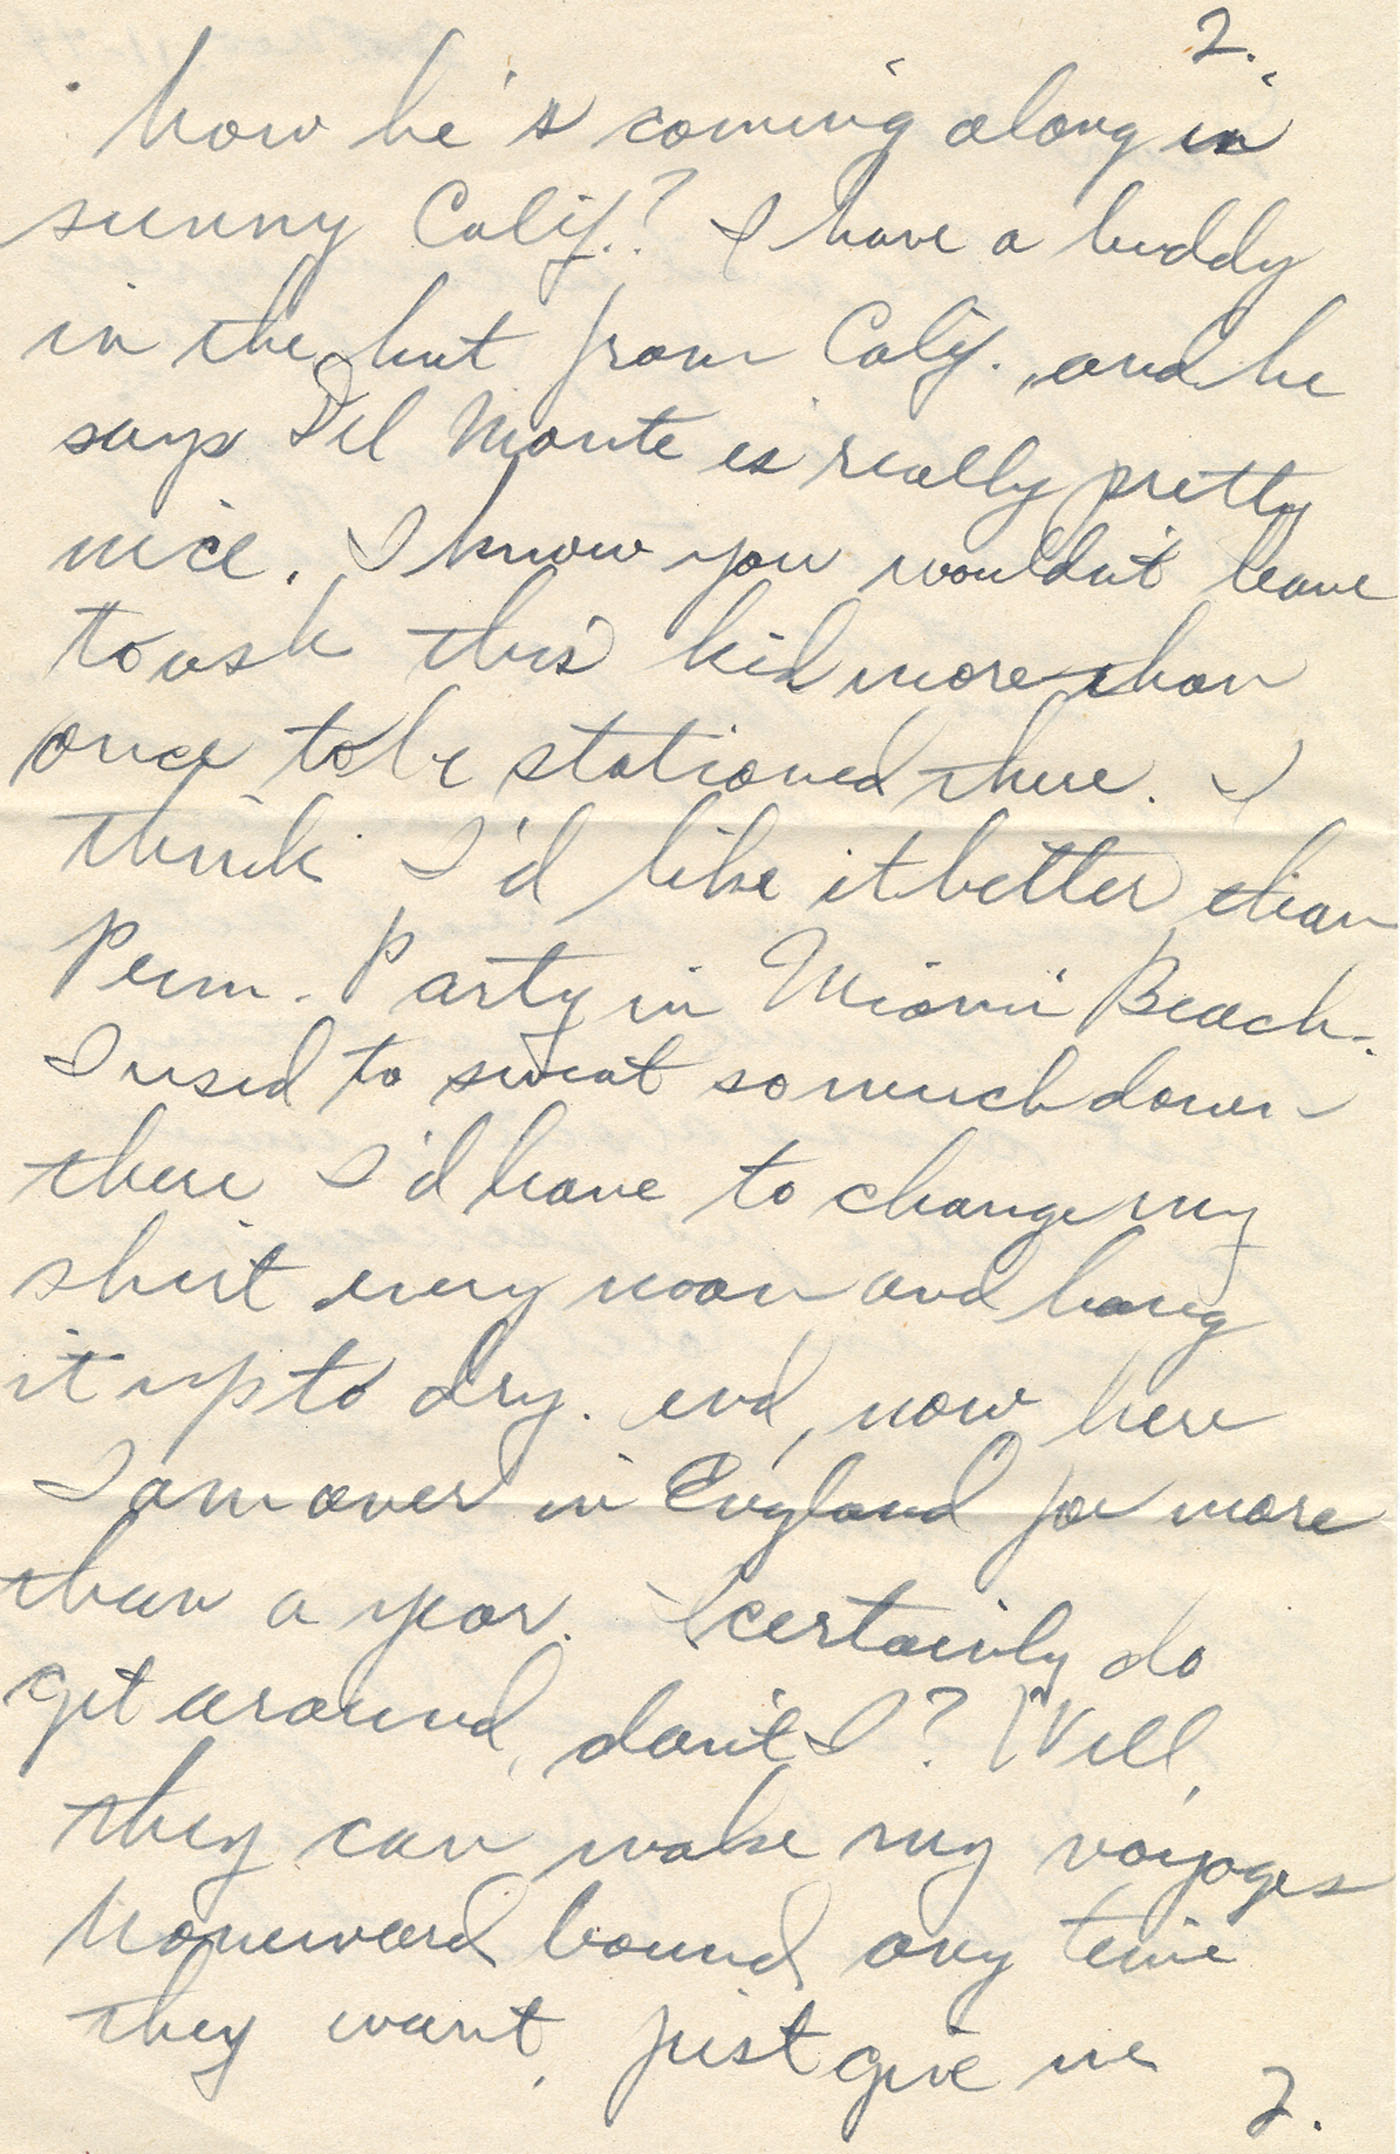 2.
how he's coming along in
sunny Calif.? I have a buddy
in the hut from Calif., and he
says Del Monte is really pretty
nice. I know you wouldn't leave
to ask this kid more than
once to be stationed there. I
think I'd like it better than
Perm. Party in Miami Beach.
I used to sweat so much down
there I'd have to change my
shirt every noon and hang
it up to dry. and, now here
I am over in England for more
than a year. I certainly do
get around, don't I? Well,
they can make my voyages
homeward bound any time
they want, just give me
2.